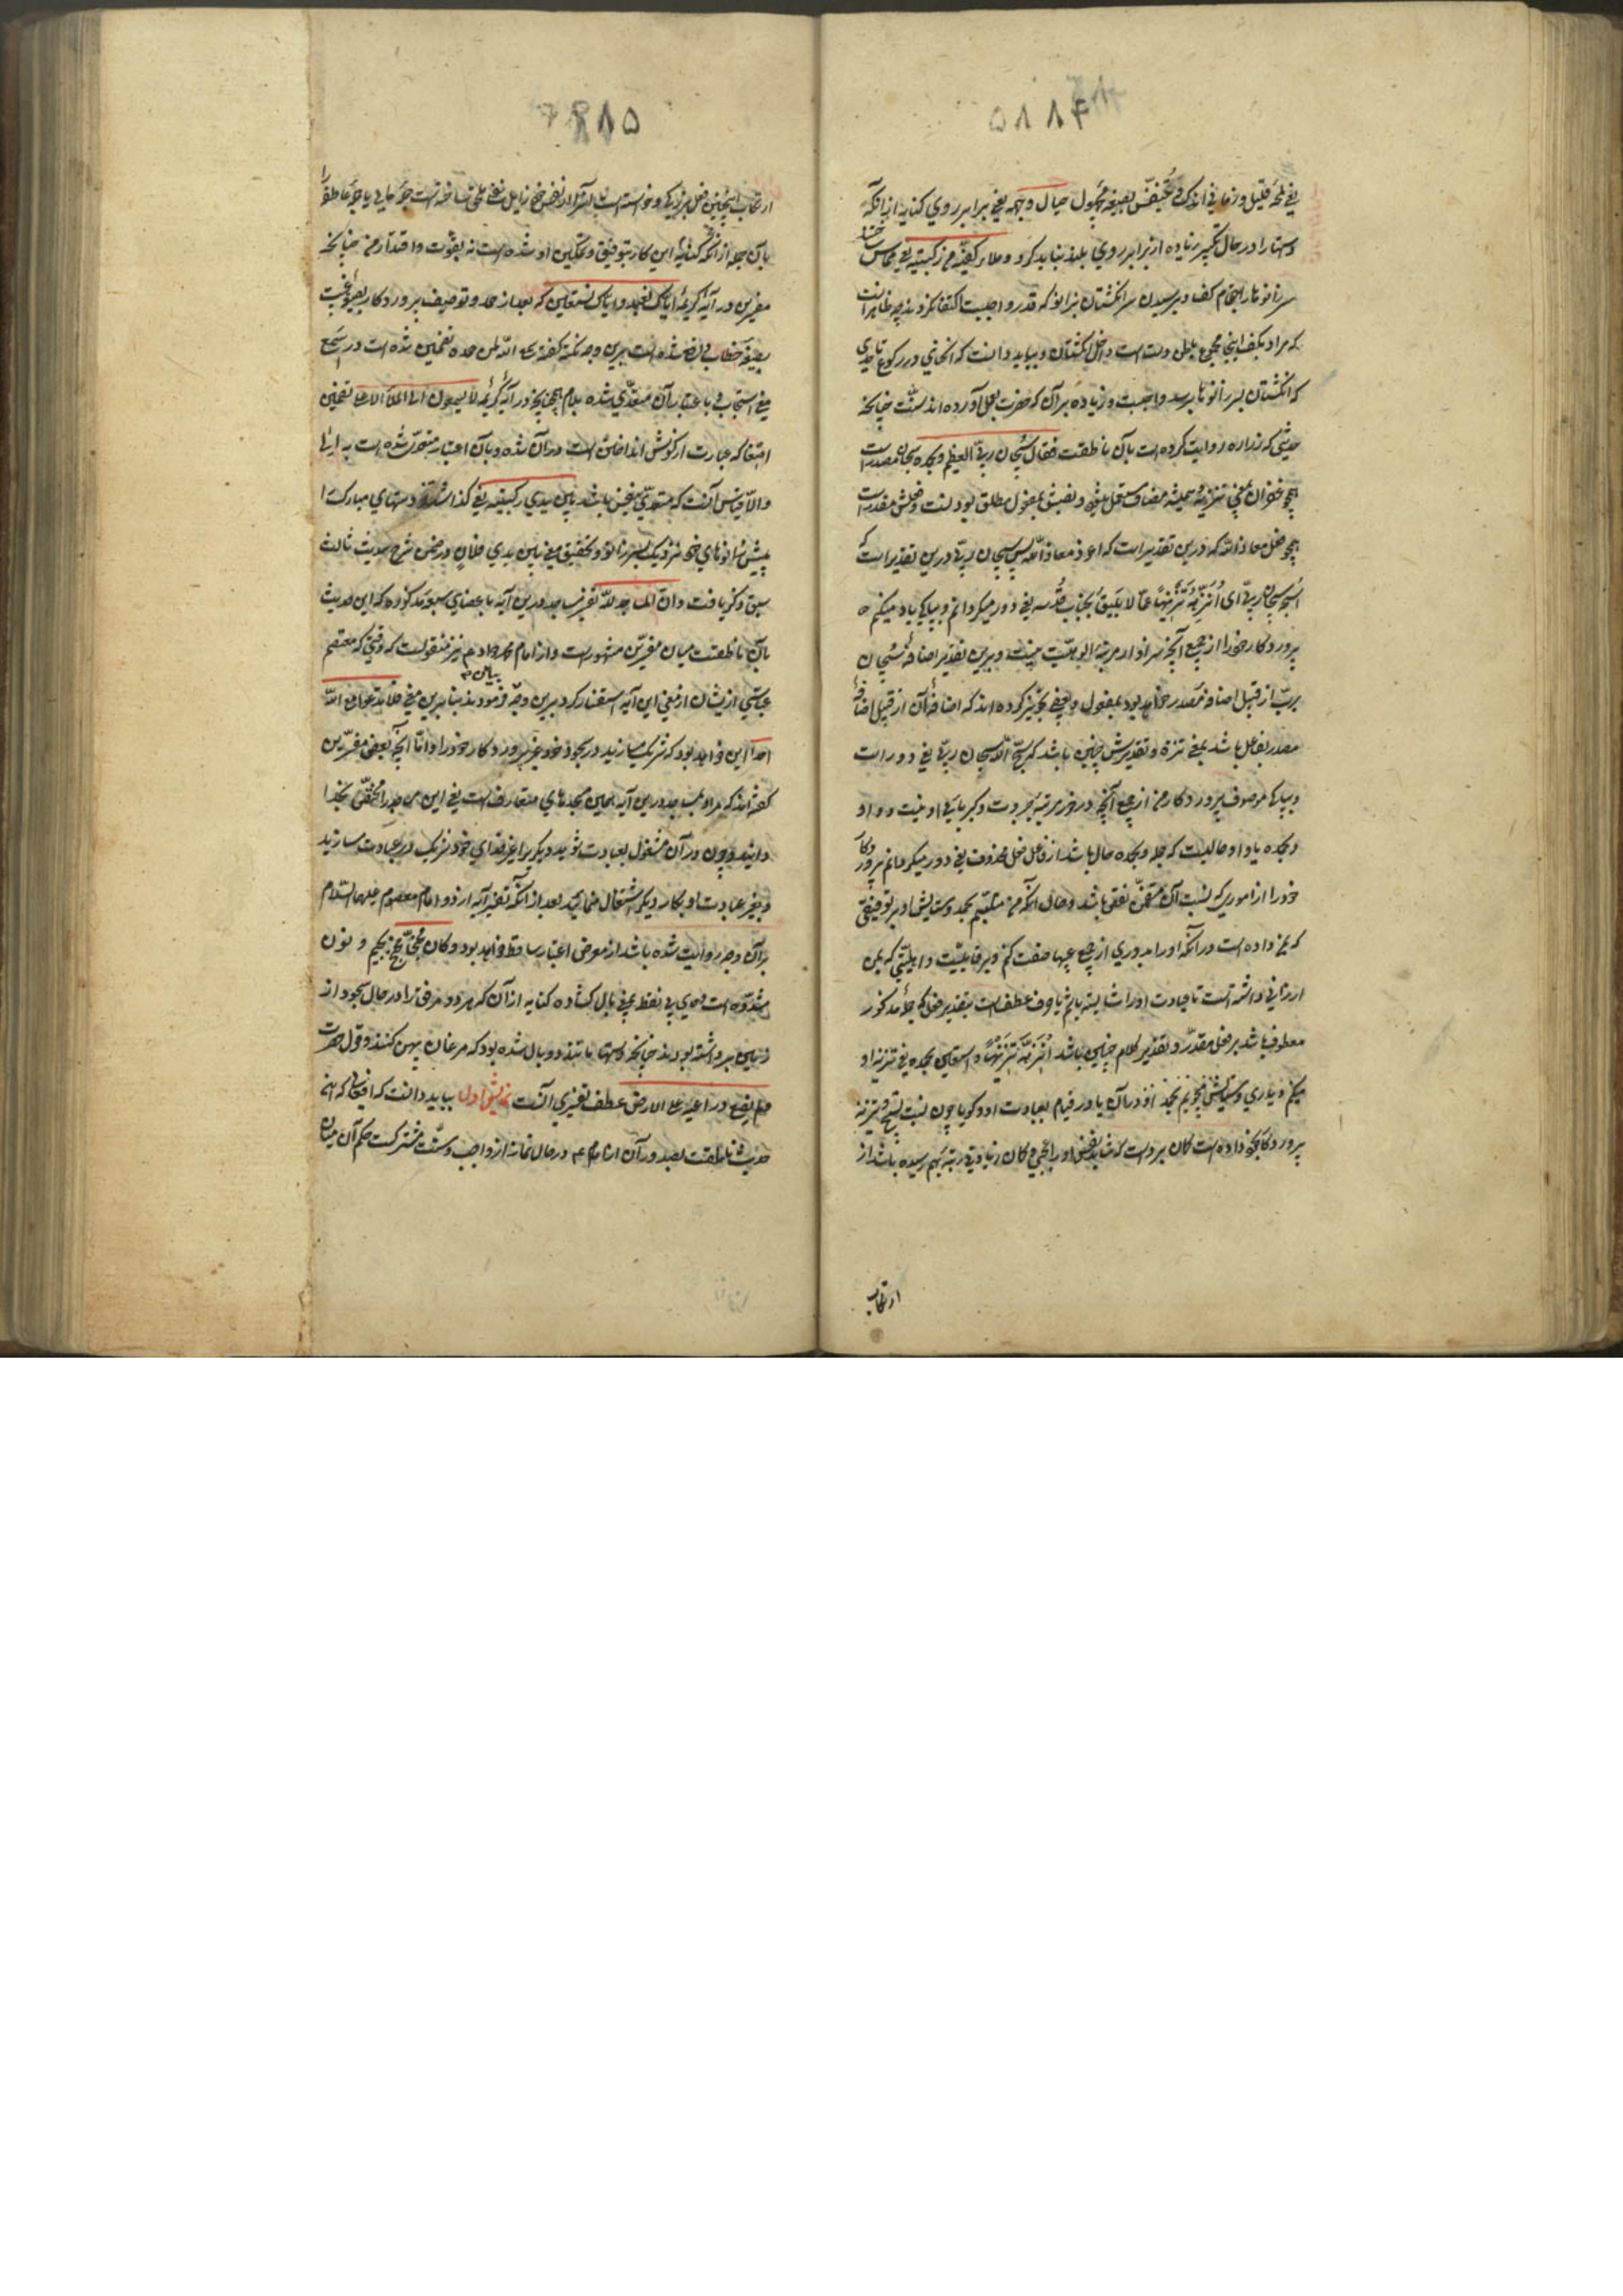 ۵۸۸۴
یعنی لمحهٔ قلیل و زمانی اندک و تنفس بصیغه مجهول حیال وجهه یعنی برابر روی کنایه از آنکه
دستها را در حال تکبیر زیاده از برابر روی بلند نباید کرد و ملأ کفیه من رکبتیه یعنی مماس ساخت
سر زانوها را بتمام کف و برسیدن سر انگشتان بزانو که قدر واجبست اکتفا نکردند چه ظاهر آنست
که مراد بکف اینجا مجموع باطن دست است و داخل انگشتان و بباید دانست که انحنائی در رکوع تا حدی
که انگشتان بسر زانوها برسد واجبست و زیاده بر آن که حضرت بعمل آورده اند سنت چنانچه
حدیثی که زراره روایت کرده است بآن ناطقست فقال سبحان ربی العظیم و بحمده سبحان مصدریست
همچو غفران بمعنی تنزیه و همیشه مضاف مستعمل میشود و نصبش بمفعول مطلق بودنست و فعلش مقدر است
همچو فعل معاذ الله که در بن تقدیر است که اعوذ معاذ الله پس سبحان ربی درین تقدیر است که
اسبح سبحان ربی ای انزهه تنزیها عما لا یلیق بجناب قدسه یعنی دور میگردانم و بپاکی یاد میکنم
پروردگار خود را از جمیع آنچه سزاوار مرتبه الوهیت نیست و برین تقدیر اضافهٔ سبحان
برب از قبیل اضافه مصدر خواهد بود بمفعول و بعضی تجویز کرده اند که اضافهٔ آن از قبیل اضافهٔ
مصدر بفاعل باشد بمعنی تنزه و تقدیرش چنین باشد که سبح الله سبحان ربی یعنی دور است
و بپاکی موصوف پروردگار من از جمیع آنچه درخور مرتبه جبروت و کبریائی او نیست و واو
و بحمده یا واو حالیست که جمله و بحمده حال باشد از فاعل فعل محذوف یعنی دور میگردانم پروردگار
خود را از اموری که نسبت آن متضمن نقص باشد و حال آنکه من متلبسم بحمد و ستایش او بر توفیقی
که بمن داده است در آنکه او را بدوری از جمیع عیبها صفت کنم و بر قابلیت و اهلیتی که بمن
ارزانی داشته است تا عبادت او را شایسته باشم یا واو عطف است بتقدیر فعلی که جمله مذکور
معطوف باشد بر فعل مقدر و تقدیر کلام چنین باشد انزهه تنزیها و استعین بحمده یعنی تنزیه او
میکنم و یاری و ستایش میجویم بحمد او در آن یا در قیام بعبادت او و گویا چون نسبت تسبیح و تنزیه
پروردگار بخود داده است گمان برده است که شاید نفس او را عجبی و گمان زیادتی رتبه بهم رسیده باشد از
ارتکاب
۵۸۸۵
ارتکاب اینچنین فعل بزرگی و خواسته است باستدراک از نفس خود زایل
بآن جمله از آنکه کنایه این کار بتوفیق و تمکین او شده است نه بقوت و اقتدار من چنانکه
مفسرین در آیهٔ کریمه ایاک نعبد و ایاک نستعین که بعد از حمد و توصیف پروردگار بصیغهٔ غیبت
بصیغهٔ خطاب است برین وجه نکته گفته سمع الله لمن حمده تضمین شده است در سمع
معنی استجاب و باعتبار آن متعدی شده بلام همچنانچه در آیه کریمه لا یسمعون الی الملأ الاعلی تضمین
اصغا که عبارت از گوش انداختن است در آن شده و بآن اعتبار متعدی شده است به الی
والا قیاس آنست که متعدی بنفس باشد بین یدی رکبتیه یعنی گذاشتند دستهای مبارک را
پیش زانوهای خود نزدیک بسر زانو و تحقیق معنی بین یدی فلان در ضمن شرح حدیث ثالث
سبق ذکر یافت و ان المساجد لله تفسیر مساجد درین آیه باعضای سبعه مذکوره که این حدیث
بآن ناطقست میان مفسرین مشهور است و از امام محمد جواد ع نیز منقولست که وقتی که معتصم
عباسی ازیشان از معنی این آیه استفسار کرد برین وجه فرمودند بنابرین معنی فلا تدعوا مع الله
احدا این خواهد بود که شریک مسازید در سجود خود غیر پروردگار خود را و اما آنچه بعضی مفسرین
گفته اند که مراد بمساجد درین آیه همین مسجدهای متعارف است یعنی این مساجد را مختص بخدا
دانید و چون در آن مشغول بعبادت شوید دیگری را غیر خدای خود شریک در عبادت مسازید
و بغیر عبادت او بکار دیگر اشتغال منمائید بعد از آنکه تفسیر آیه از دو امام معصوم علیهما السلام
بر آن وجه روایت شده باشد از معرض اعتبار ساقط خواهد بود و کان مجنح بجیم و نون
مشدده است و حای بی نقطه یعنی بال گشاده کنایه از آن که هر دو مرفق را در حال سجود از
زمین برداشته بودند چنانچه دستها بمانند دو بال شده بود که مرغان پهن کنند و قول حضرت
و لم یضع ذراعیه علی الارض عطف تفسیری آنست نمایش اول بباید دانست که افعالی که این
حدیث ناطقست بصدور آن از امام ع در حال نماز از واجب و سنت مشترکست حکم آن میان